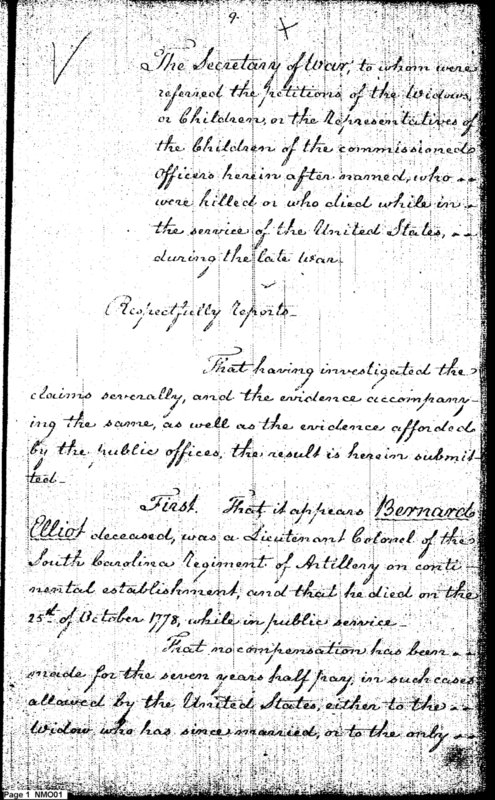 9.
The Secretary of War, to whom were
referred the petitions of the Widows,
or Children, or the Representatives of
the Children of the commissioned
Officers herein after named, who
were killed or who died while in
the service of the United States,
during the late War.
Respectfully Reports_
That having investigated the
claims severally, and the evidence accompany-
ing the same, as well as the evidence afforded
by the public offices, the result is herein submit-
ted_
First. That it appears Bernard
Elliot deceased, was a Lieutenant Colonel of the
South Carolina Regiment of Artillery on conti-
nental establishment, and that he died on the
25th of October 1778, while in public service_
That no compensation has been
made for the seven years half pay, in such cases
allowed by the United States, either to the
Widow, who has since married, or to the only
Page 1 NMO01